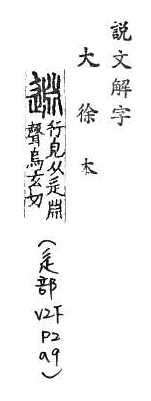 説文解字
大徐本
行皃从辵𣶒
聲烏玄切
(辵部V2下P2a9)